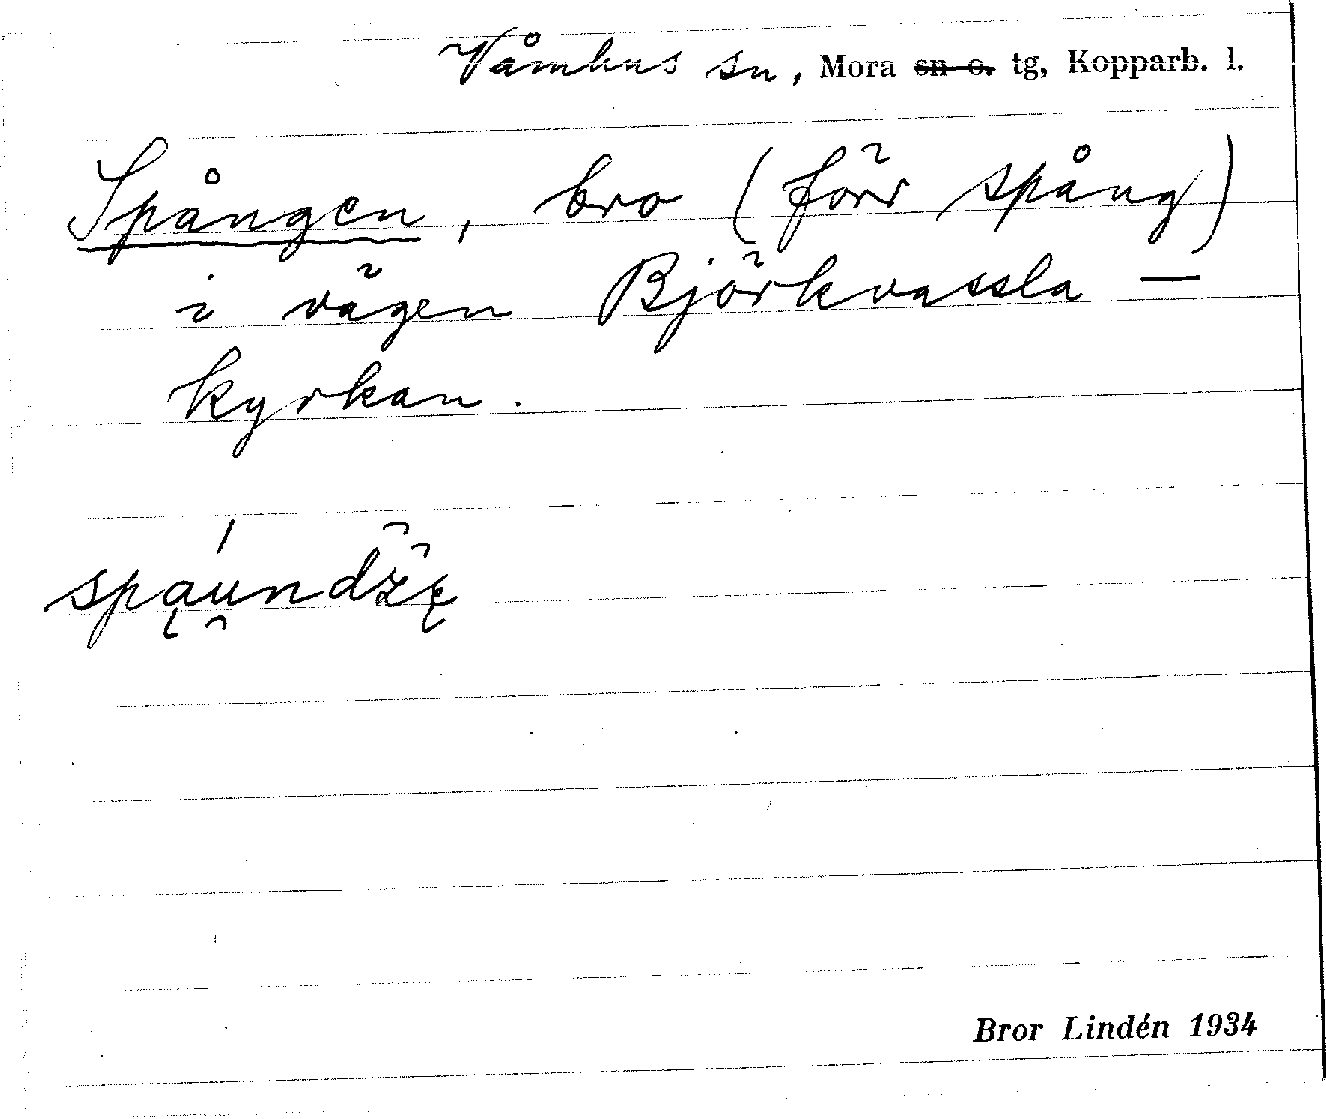 Våmhus sn, Mora ~~sn o.~~ tg, Kopparb. l.
Spången, bro (förr spång)
i vägen Björkvassla —
kyrkan.
spą́u̯ndžę
Bror Lindén 1934